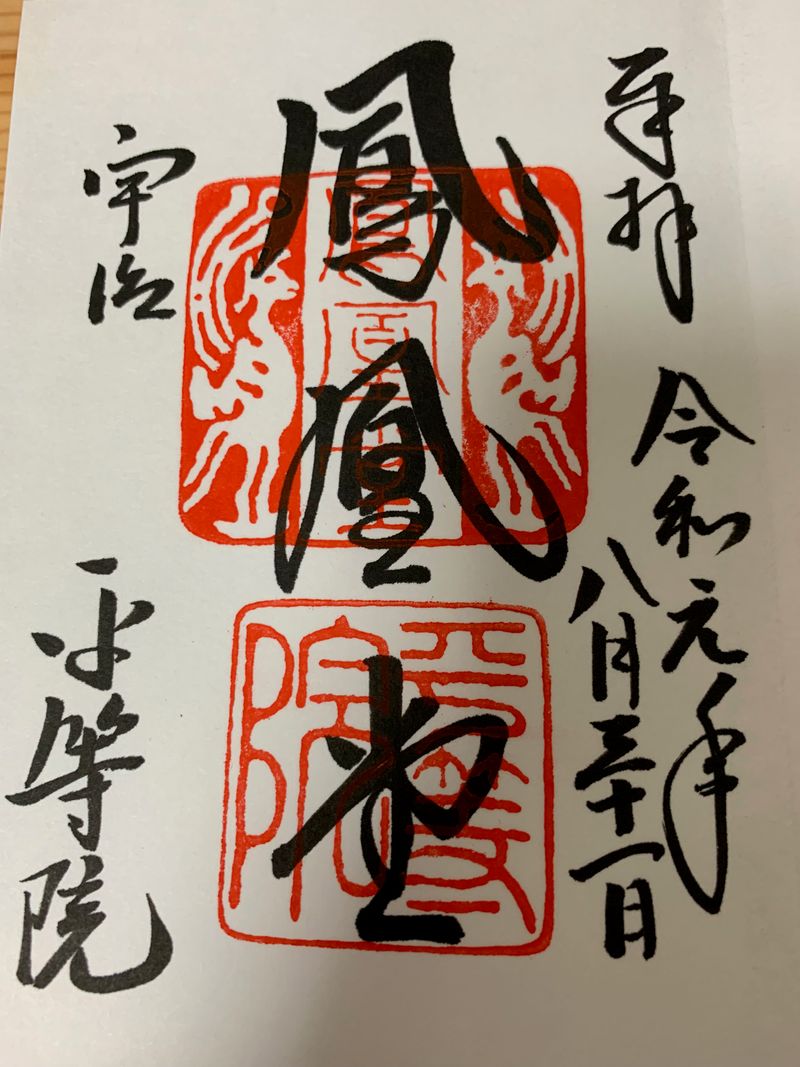 奉拝
令和元年
八月三十一日
鳳凰堂
鳳凰堂
平等院
宇治
平等院